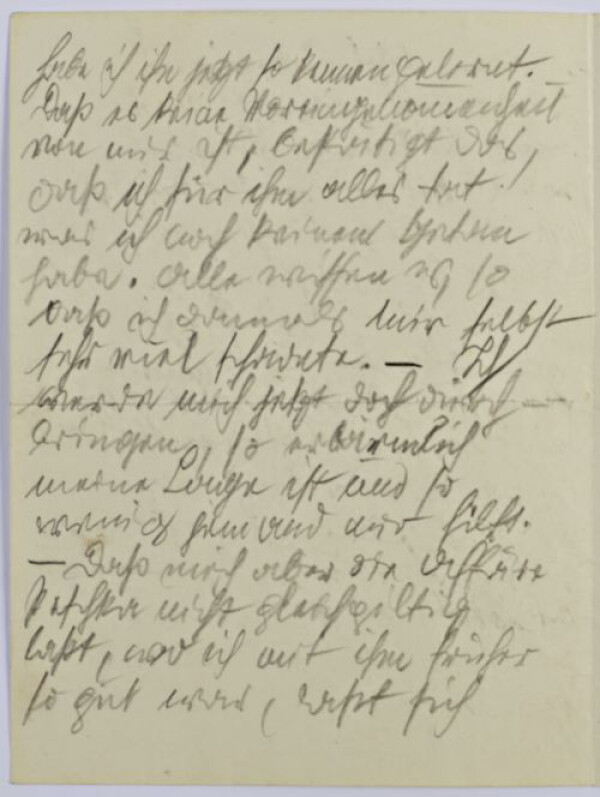 habe ich ihn jetzt so kennen gelernt. –
Daß es keine Voreingenomenheit
von mir ist, bestätigt das,
daß ich für ihn alles tat!
was ich noch keinem getan
habe. Alle wissen es, so
daß ich damals mir selbst
sehr viel schadete. – Ich
werde mich jetzt doch durch –
bringen, so erbärmlich
meine Lage ist und so
wenig jemand mir hilft.
– Daß mich aber die Affäre
nicht gleichgiltig
läßt, wo ich mit ihm früher
so gut war, läßt sich